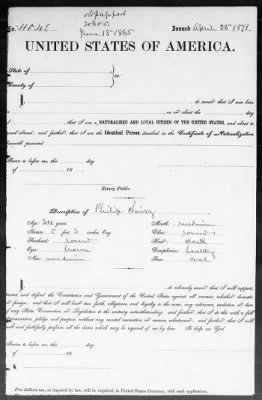 Old passport
June 13th 1865
No. Issued April 25th 1871.
UNITED STATES OF AMERICA.
State of
County of
ss.
I, do swear that I was born
in on or about the day
of that I am a NATURALIZED AND LOYAL CITIZEN OF THE UNITED STATES, and about
and further, that I am the Identical Person described in the Certificate of Naturalization
herewith presented.
Sworn to before me, this day
of 18
Notary Public.
Description of Philip
Age: years. Mouth: medium
Stature: 5 feet inches, Eng. Chin: round
Forehead: round Hair: dark
Eyes: brown Complexion: healthy
Nose: medium Face: oval
I, do solemnly swear that I will support,
protect, and defend the Constitution and Government of the United States against all enemies, whether domestic
or foreign; and that I will bear true faith, allegiance and loyalty to the same, any ordinance, resolution or law
of any State Convention or Legislature to the contrary notwithstanding; and further, that I do this with a full
determination, pledge, and purpose, without any mental reservation or evasion whatsoever; and further, that I will
well and faithfully perform all the duties which may be required of me by law. So help me God.
Sworn to before me, this day
of 18
Five dollars tax, as imposed by law, will be required, in United States Currency, with each application.